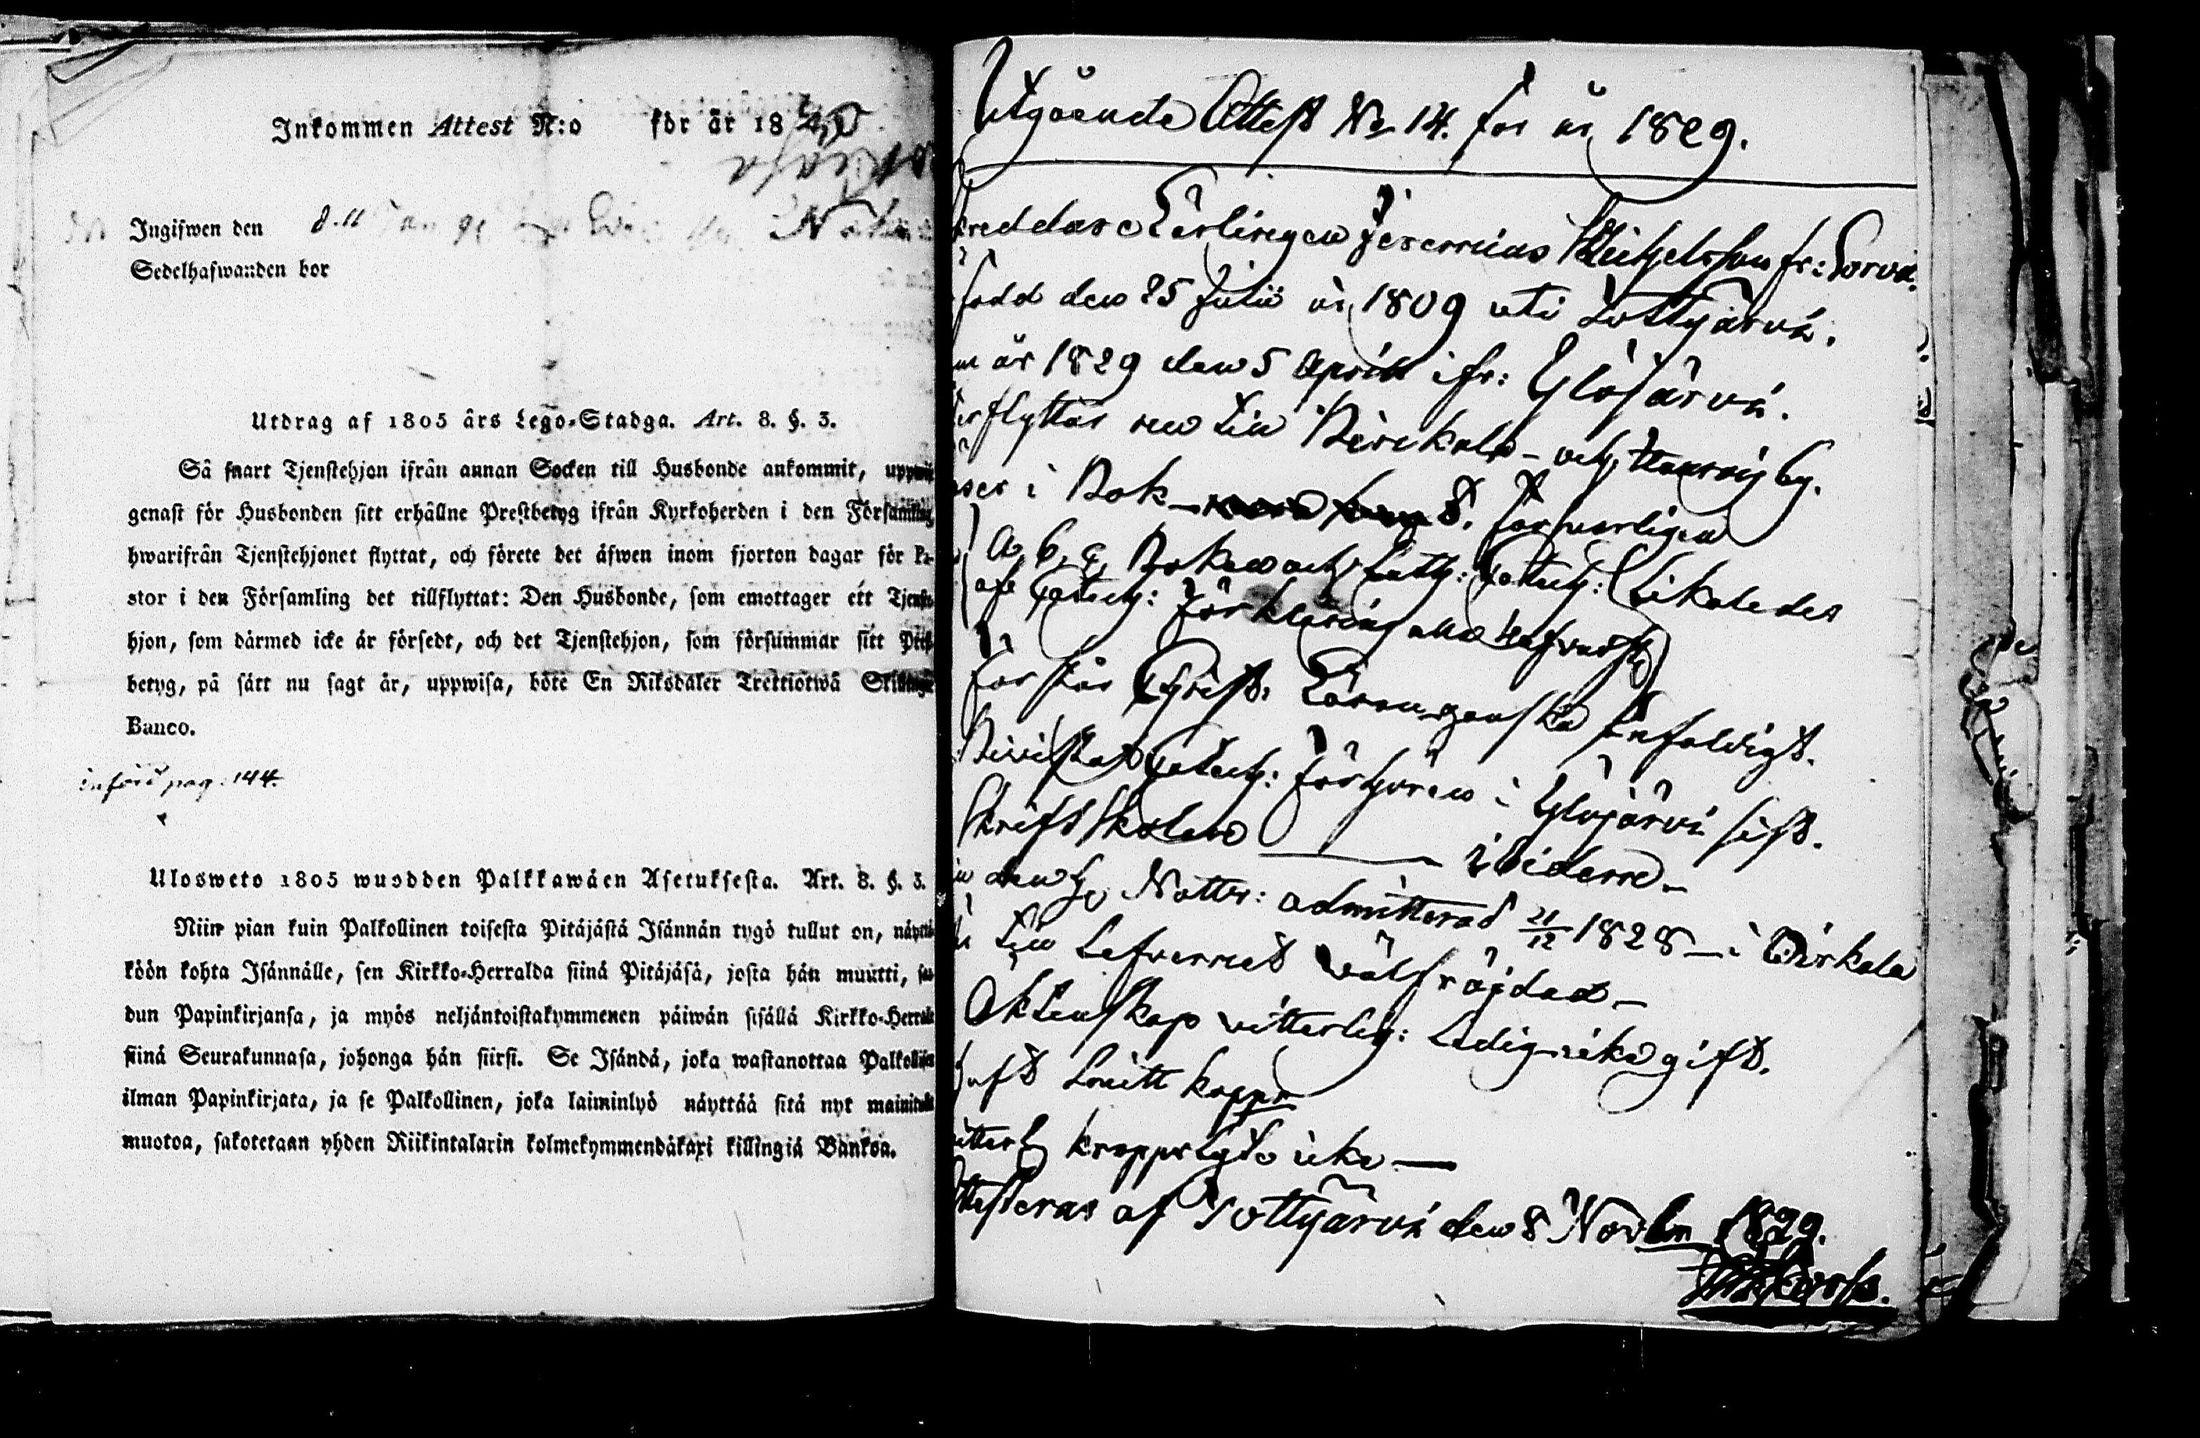 Inkommen Attest N:o för år 18
Ingifwen den
Sedelhafwanden bor
Utdrag af 1805 års Lego-Stadga. Art. 8. §. 3.
Så snart Tjenstehjon ifrån annan Socken till Husbonde ankommit, uppwis
genast för Husbonden sitt erhållne Prestbetyg ifrån Kyrkoherden i den Församling
hwarifrån Tjenstehjonet flyttat, och förete det äfwen inom fjorton dagar för Pa-
stor i den Församling det tillflyttat: Den Husbonde, som emottager ett Tjenste-
hjon, som därmed icke är försedt, och det Tjenstehjon, som försummar sitt Prest-
betyg, på sätt nu sagt är, uppwisa, böte En Riksdaler Trettiotwå Skillingar
Banco.
införd pag. 144.
Ulosweto 1805 wuodden Palkkawäen Asetuksesta. Art. 8. §. 3.
Niin pian kuin Palkollinen toisesta Pitäjästä Isännän tygö tullut on, näyttä-
köön kohta Isännälle, sen Kirkko-Herralda siinä Pitäjäsä, josta hän muutti, saa-
dun Papinkirjansa, ja myös neljäntoistakymmenen päiwän sisällä Kirkko-Herralle
siinä Seurakunnasa, johonga hän siirsi. Se Isändä, joka wastanottaa Palkollisen
ilman Papinkirjata, ja se Palkollinen, joka laiminlyö näyttää sitä nyt mainitulla
muotoa, sakotetaan yhden Riikintalarin kolmekymmendäkaxi killingiä Bankoa.
Utgående Attest No 14. för år 1829.
Skreddare Lärlingen Jeremias Michelsson fr: Sorva.
född den 25 Julii år 1809 uti Tottijärvi.
år 1829 den 5 April ifr: Ylöjärvi.
flyttar nu till Birckala och by.
i Bok 8. försvarligen
a, b, c, Boken och Luth: Catech: Likaledes
Catech: Förklaring
Förstår Christ: enfaldigt.
Bevistat Catech: Förhören i Ylöjärvi sist.
Skriftskolan ibidem
den H. Nattv: admitterad 21/12 1828 i Birkala
till Lefvernet välfräjdad
Äktenskap vitterlig: Ledig icke gift.
haft Smittkoppr
kroppslyte icke
Attesteras af Tottijärvi den 8 Novbr 1829.